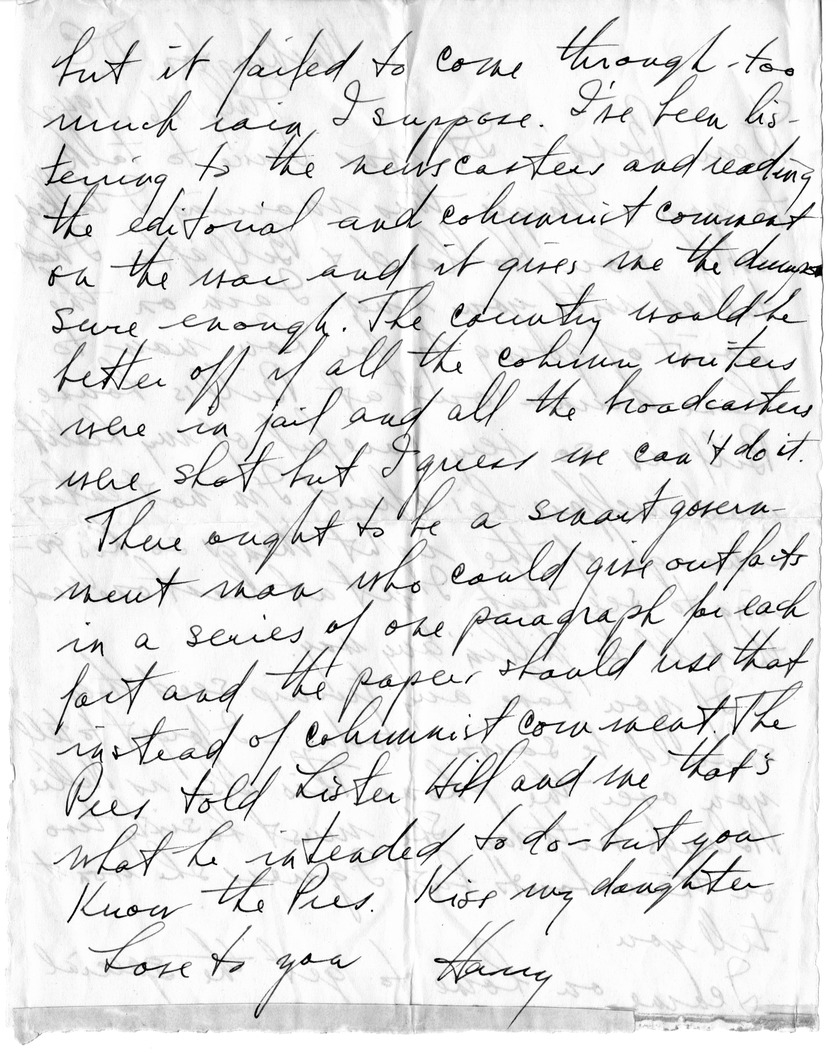 but it failed to come through - too
much rain I suppose. I've been lis-
tening to the newscasters and reading
the editorial and columnist comment
on the war and it gives me the dumps
sure enough. The country would be
better off if all the column writers
were in jail and all the broadcasters
were shot but I guess we can't do it.
There ought to be a smart govern-
ment man who could give out facts
in a series of one paragraph for each
fact and the papers should use that
instead of columnist comment. The
Pres told Lister Hill and me that's
what he intended to do - but you
Know the Pres. Kiss my daughter
Love to you Harry